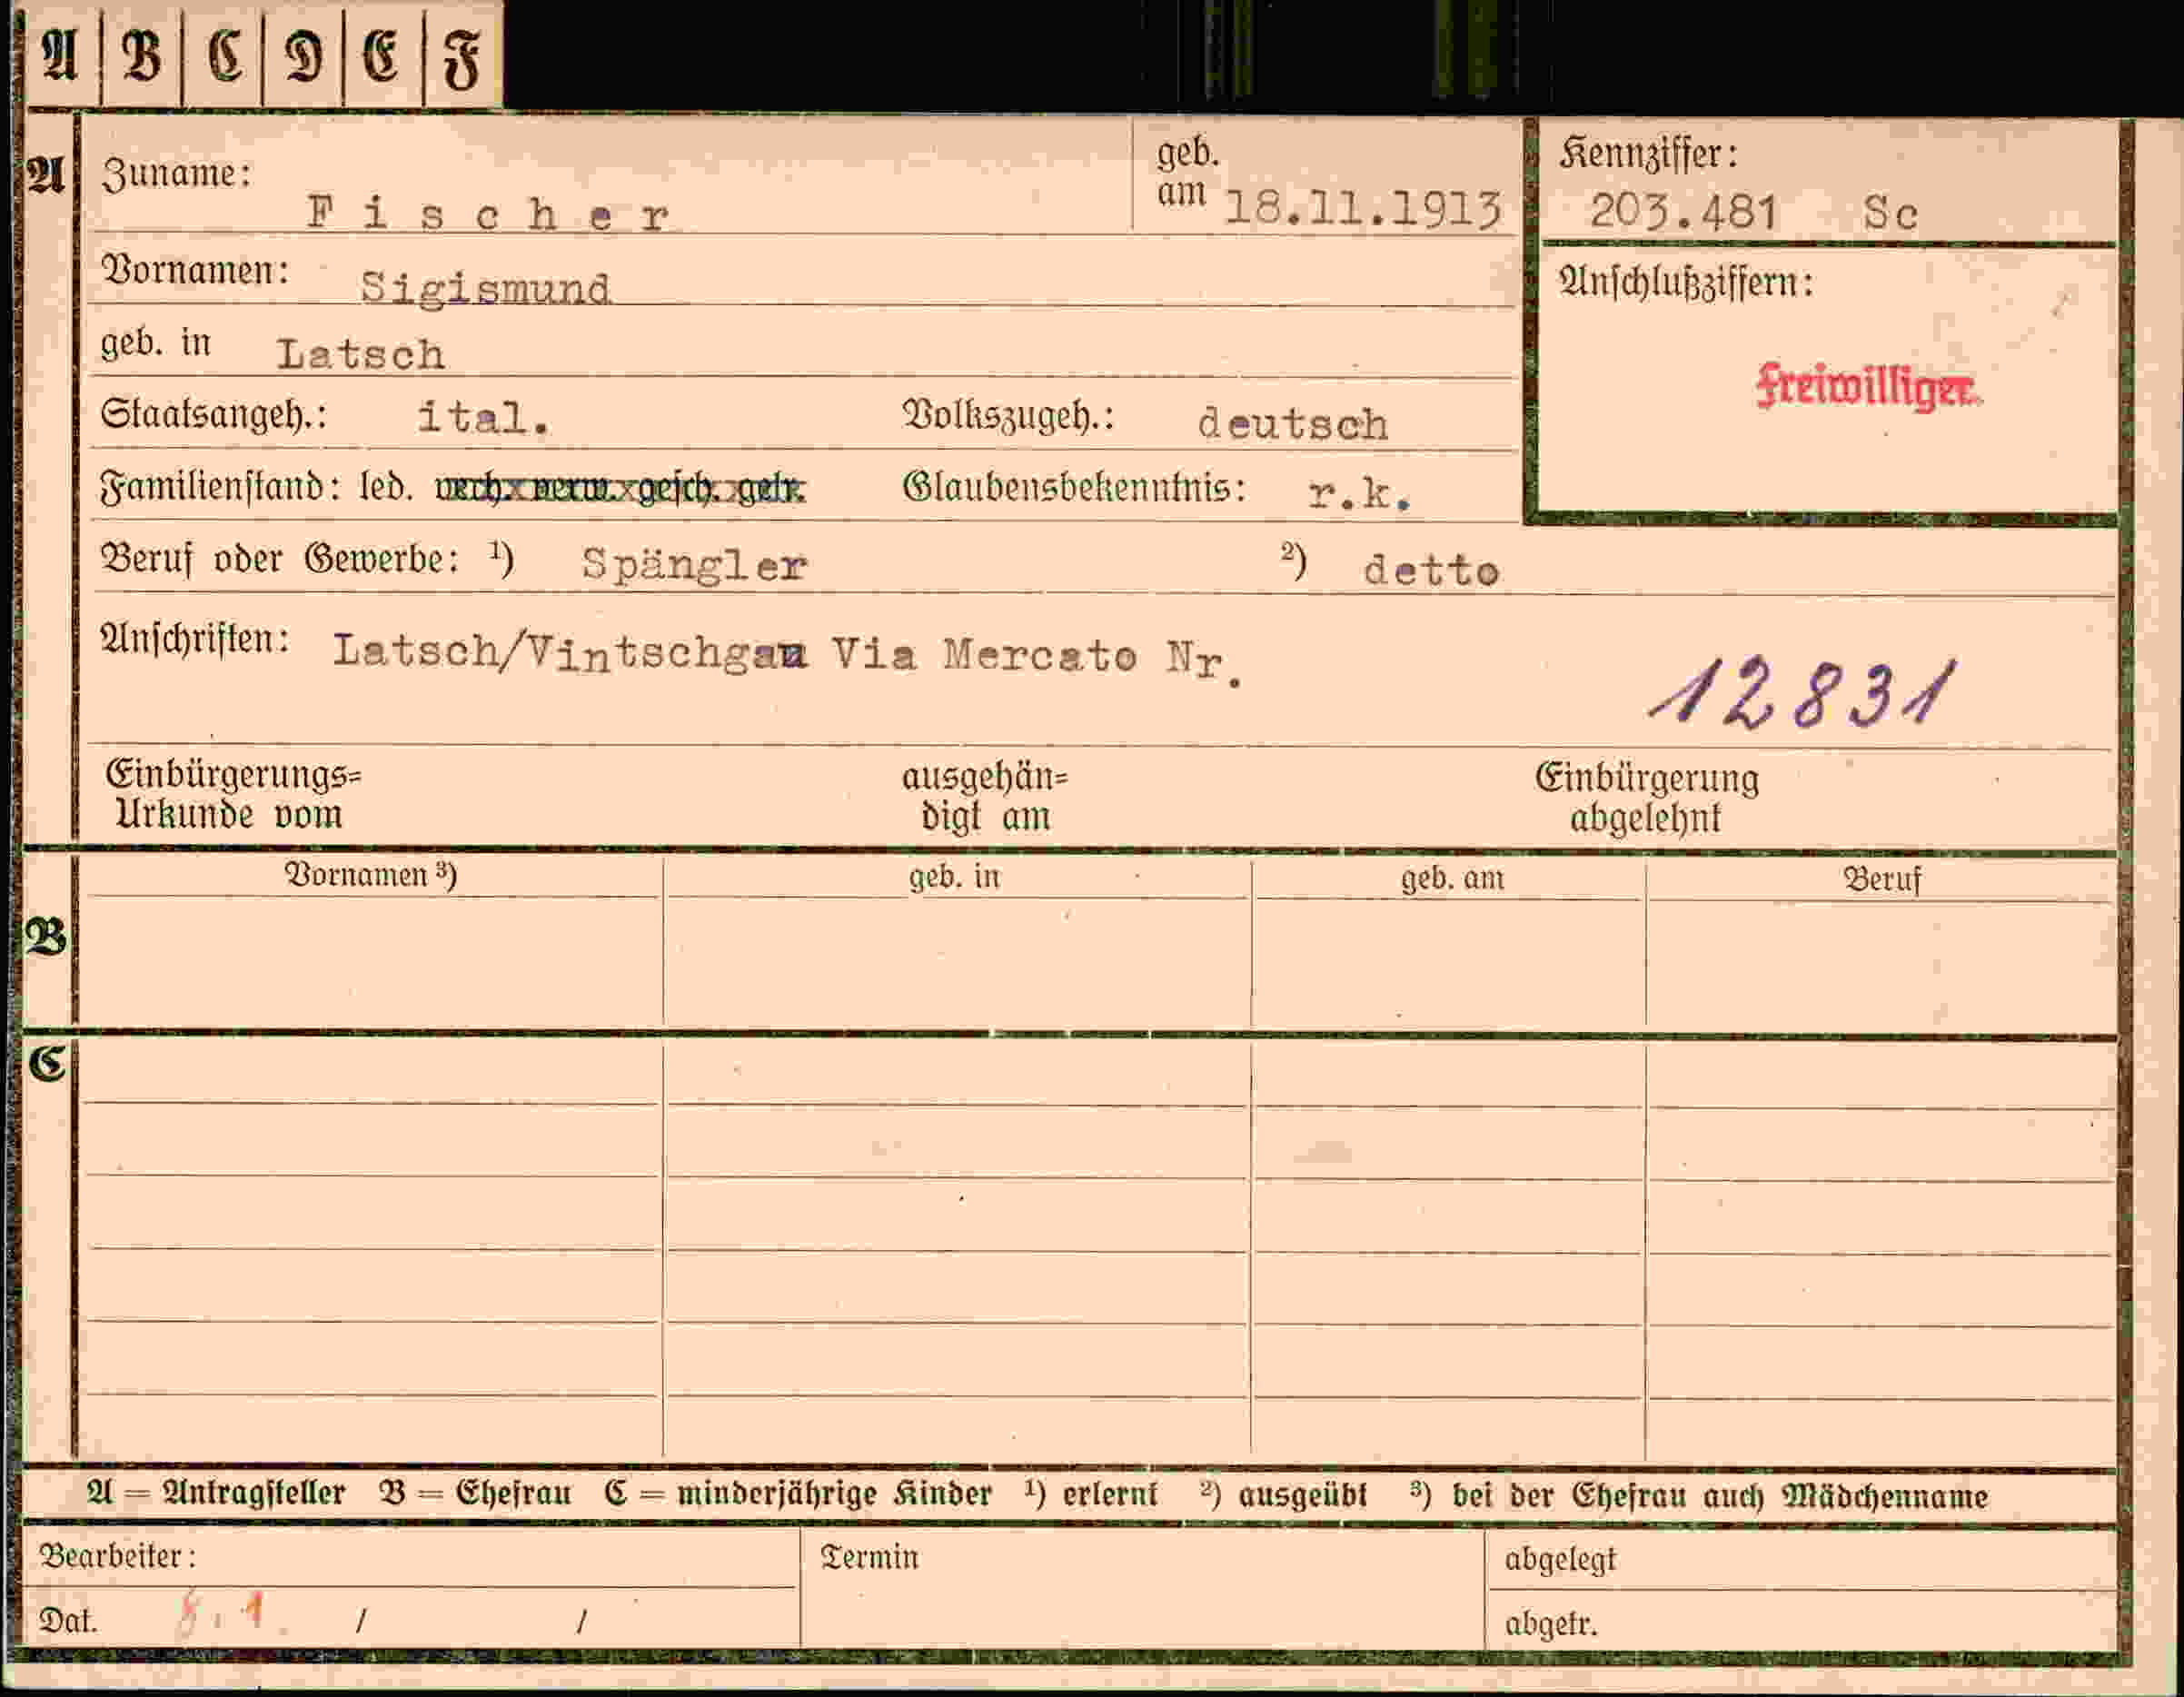 A B C D E F
A Zuname: Fischer geb. am 18.11.1913 Kennziffer: 203.481 Sc
Vornamen: Sigismund Anschlußziffern:
geb. in Latsch
Freiwilliger.
Staatsangeh.: ital. Volkszugeh.: deutsch
Familienstand: led. verh. verw. gesch. getr. Glaubensbekenntnis: r.k.
Beruf oder Gewerbe: ¹) Spängler ²) detto
Anschriften: Latsch/Vintschgau Via Mercato Nr.
12831
Einbürgerungs= ausgehän= Einbürgerung
Urkunde vom digt am abgelehnt
Vornamen ³) geb. in geb. am Beruf
B
C
A = Antragsteller B = Ehefrau C = minderjährige Kinder ¹) erlernt ²) ausgeübt ³) bei der Ehefrau auch Mädchenname
Bearbeiter: Termin abgelegt
Dat. / / abgetr.